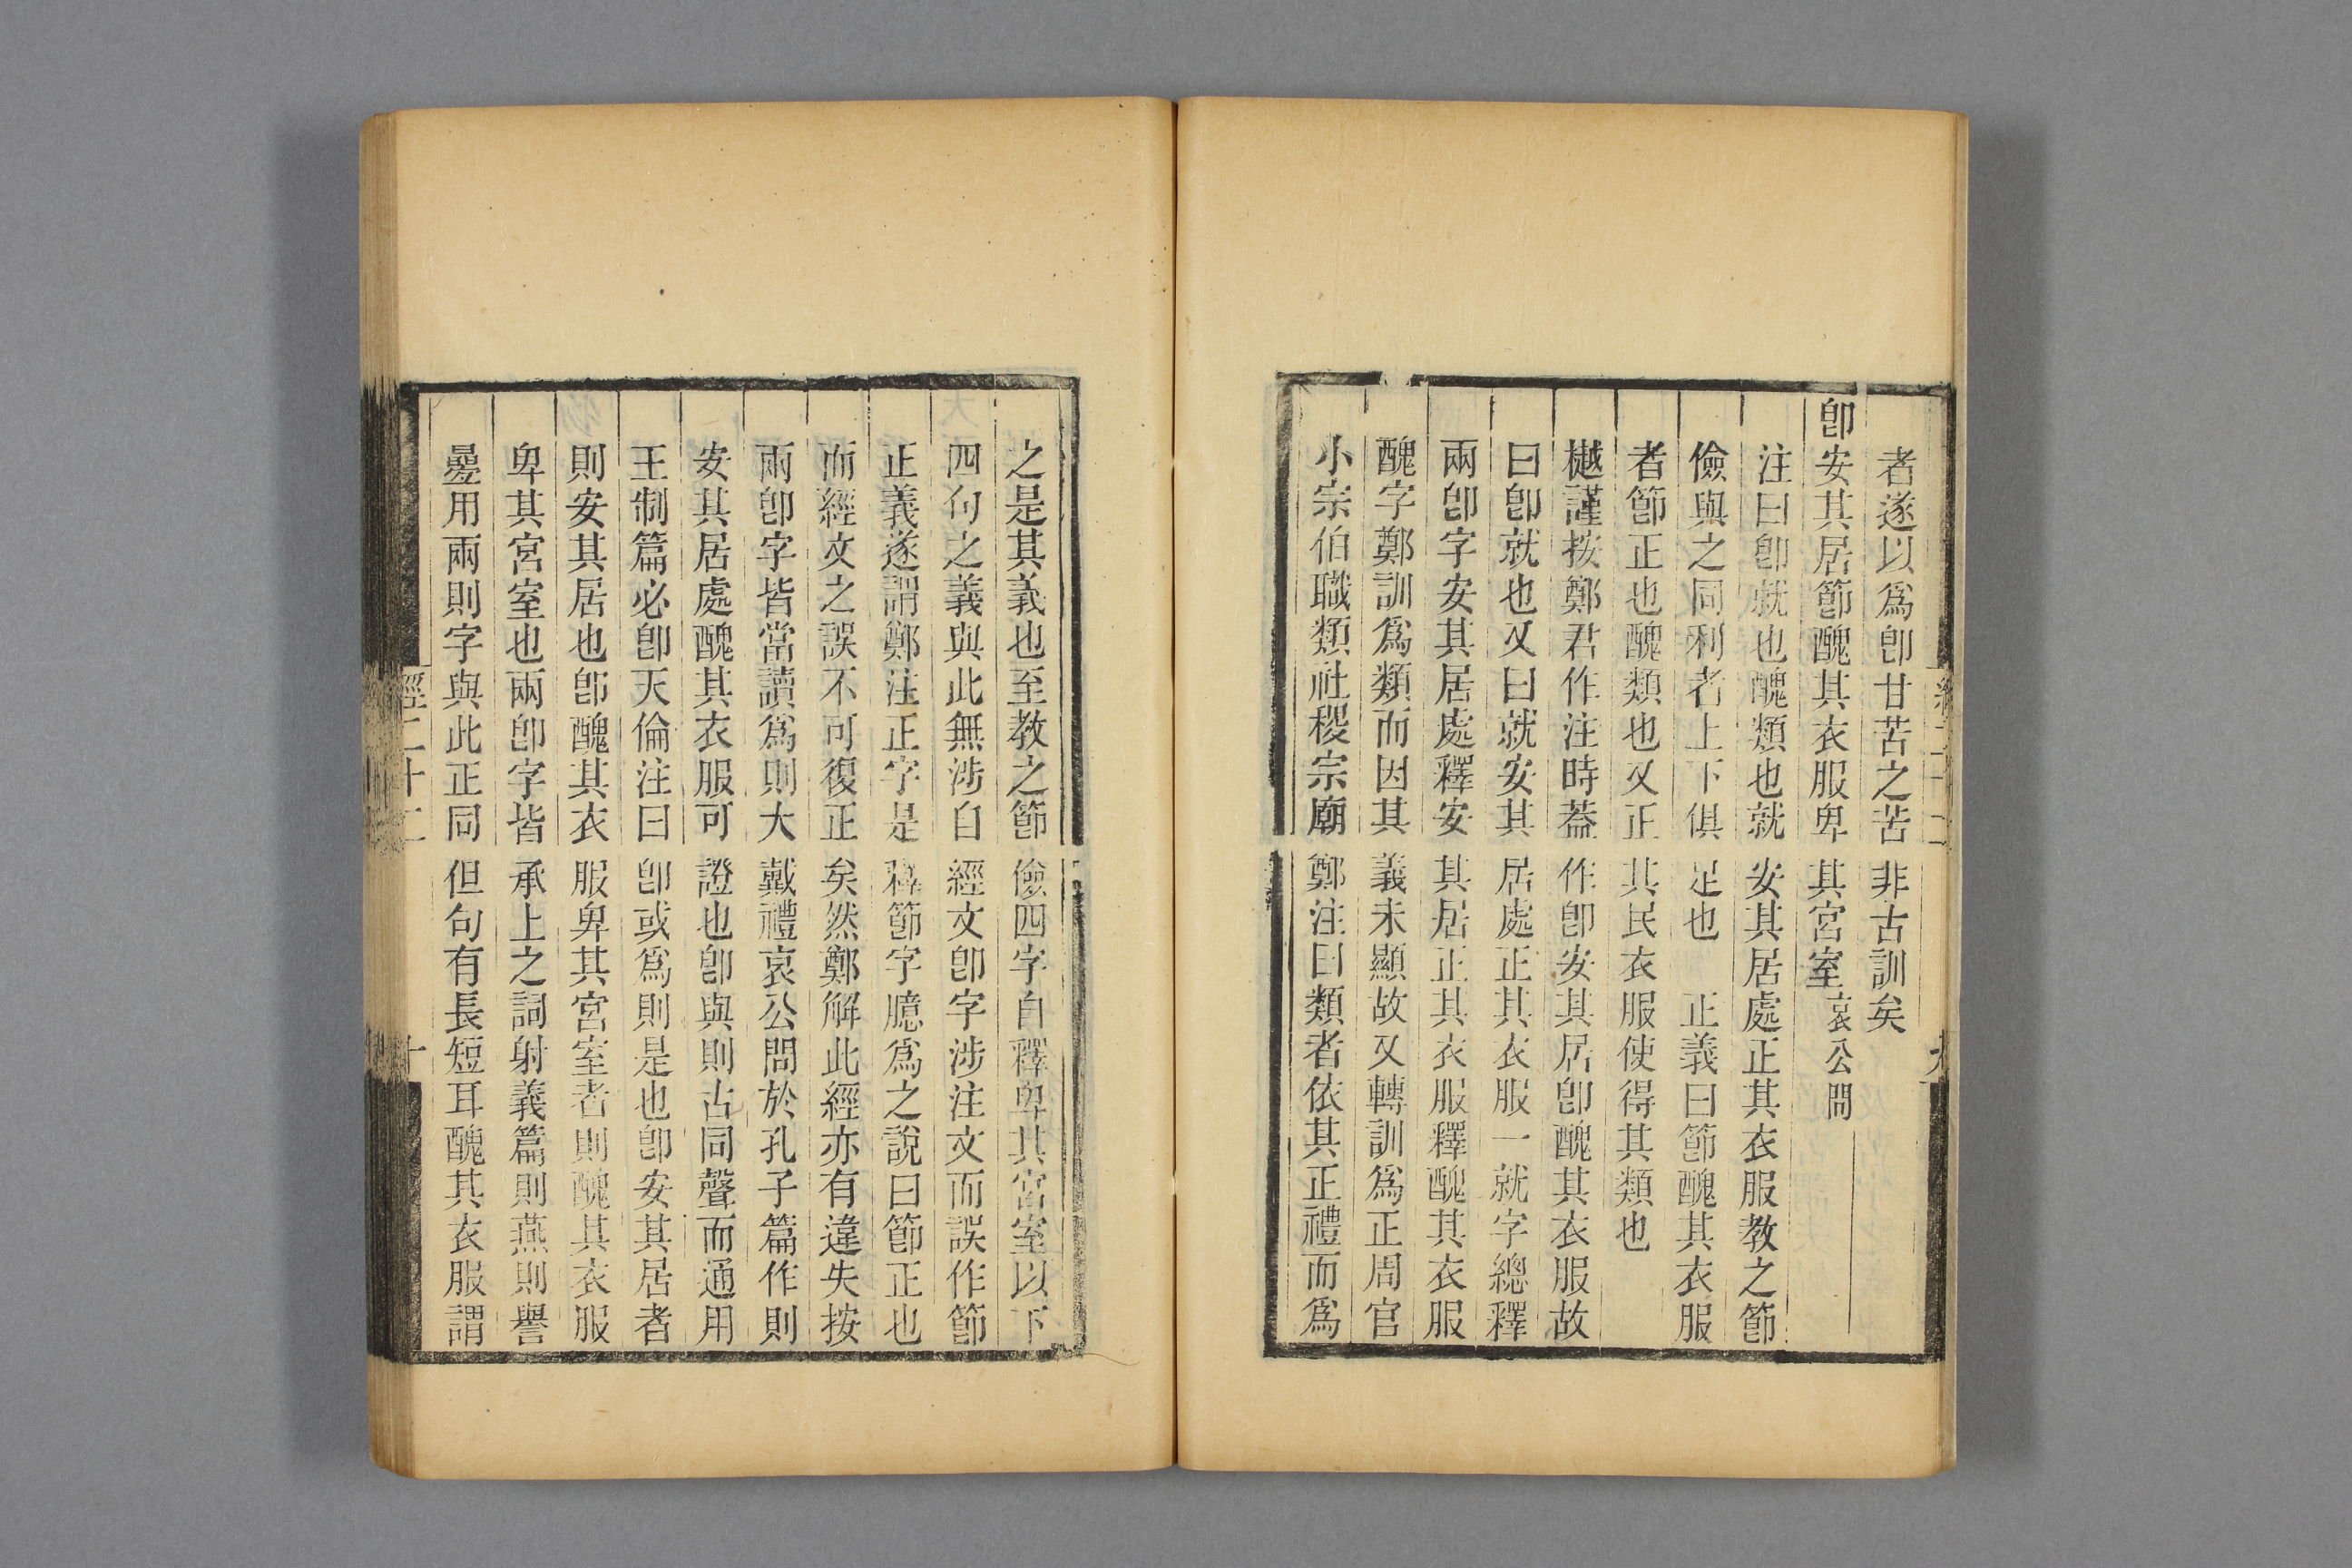 者遂以爲卽甘苦之苦非古訓矣
卽安其居節醜其衣服卑其宮室哀公問
注曰卽就也醜類也就安其居處正其衣服教之節
儉與之同利者上下俱足也　正義曰節醜其衣服
者節正也醜類也又正其民衣服使得其類也
樾謹按鄭君作注時葢作卽安其居卽醜其衣服故
曰卽就也又曰就安其居處正其衣服一就字總釋
兩卽字安其居處釋安其居正其衣服釋醜其衣服
醜字鄭訓爲類而因其義未顯故又轉訓爲正周官
小宗伯職類社稷宗廟鄭注曰類者依其正禮而爲
之是其義也至教之節儉四字自釋卑其宮室以下
四句之義與此無涉自經文卽字涉注文而誤作節
正義遂謂鄭注正字是釋節字臆爲之說曰節正也
而經文之誤不可復正矣然鄭解此經亦有違失按
兩卽字皆當讀爲則大戴禮哀公問於孔子篇作則
安其居處醜其衣服可證也卽與則古同聲而通用
王制篇必卽天倫注曰卽或爲則是也卽安其居者
則安其居也卽醜其衣服卑其宮室者則醜其衣服
卑其宮室也兩卽字皆承上之詞射義篇則燕則譽
曡用兩則字與此正同但句有長短耳醜其衣服謂
經二十二
十